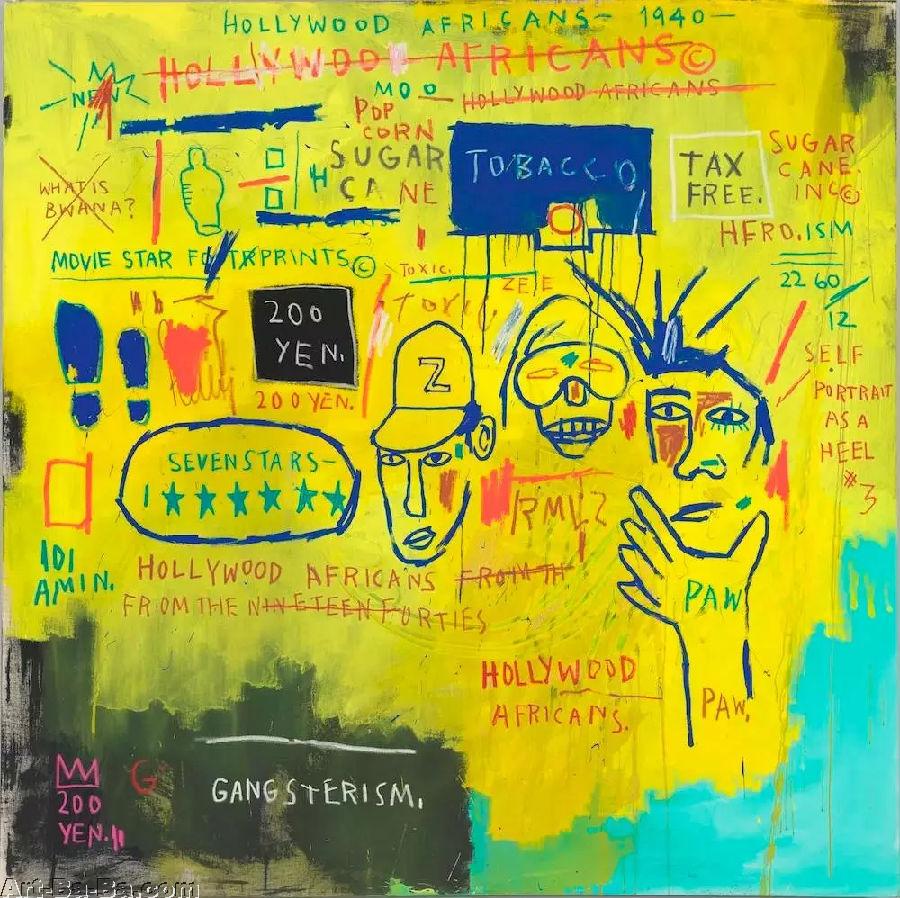 HOLLYWOOD AFRICANS- 1940-
HOLLYWOOD AFRICANS©
NEW
MOO
HOLLYWOOD AFRICANS
POP
CORN
SUGAR
CANE
H
TOBACCO
TAX
FREE.
SUGAR
CANE.
INC©
WHAT IS
BWANA?
HERO.ISM
MOVIE STAR FOOTPRINTS©
TOXIC.
2260
12
200
YEN.
200 YEN.
Z
SELF
PORTRAIT
AS A
HEEL
#3
SEVEN STARS-
1 ★★★★★★
RMLZ
IDI
AMIN.
HOLLYWOOD AFRICANS FROM TH
FROM THE NINETEEN FORTIES
PAW
HOLLYWOOD
AFRICANS.
PAW.
GANGSTERISM.
G
200
YEN.
Art-Ba-Ba.com